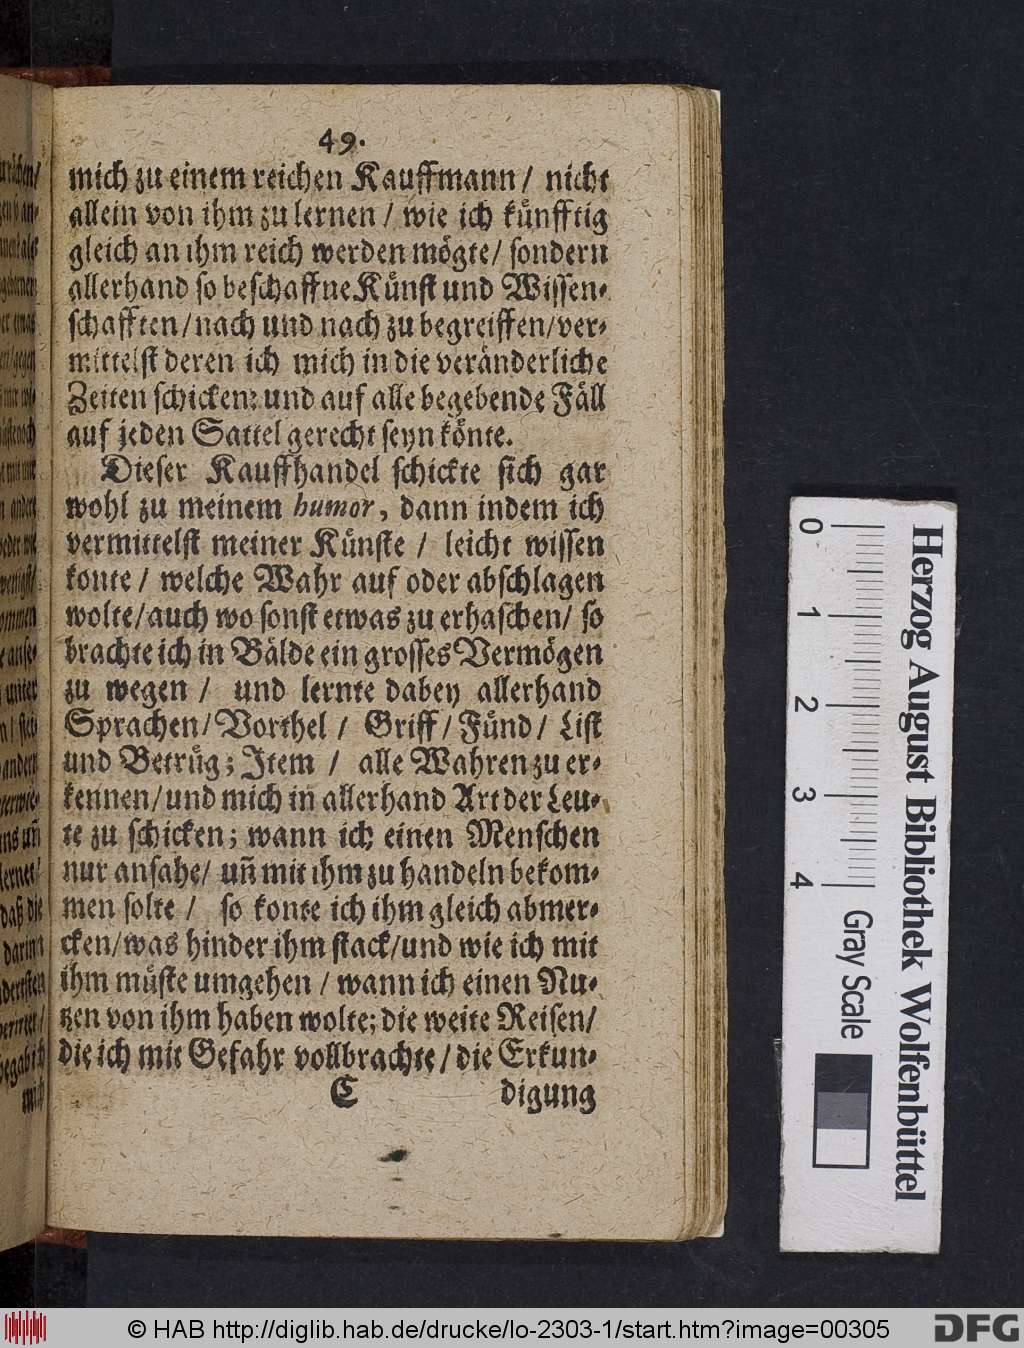 49.
mich zu einem reichen Kauffmann / nicht
allein von ihm zu lernen / wie ich künfftig
gleich an ihm reich werden mögte / sondern
allerhand so beschaffne Künst und Wissen-
schafften / nach und nach zu begreiffen / ver-
mittelst deren ich mich in die veränderliche
Zeiten schicken: und auf alle begebende Fäll
auf jeden Sattel gerecht seyn könte.
Dieser Kauffhandel schickte sich gar
wohl zu meinem humor, dann indem ich
vermittelst meiner Künste / leicht wissen
konte / welche Wahr auf oder abschlagen
wolte / auch wo sonst etwas zu erhaschen / so
brachte ich in Bälde ein grosses Vermögen
zu wegen / und lernte dabey allerhand
Sprachen / Vorthel / Griff / Fünd / List
und Betrüg; Item / alle Wahren zu er-
kennen / und mich in allerhand Art der Leu-
te zu schicken; wann ich einen Menschen
nur ansahe / uñ mit ihm zu handeln bekom-
men solte / so konte ich ihm gleich abmer-
cken / was hinder ihm stack / und wie ich mit
ihm müste umgehen / wann ich einen Nu-
tzen von ihm haben wolte; die weite Reisen /
die ich mit Gefahr vollbrachte / die Erkun-
C digung
0 1 2 3 4 Gray Scale
Herzog August Bibliothek Wolfenbüttel
© HAB http://diglib.hab.de/drucke/lo-2303-1/start.htm?image=00305
DFG